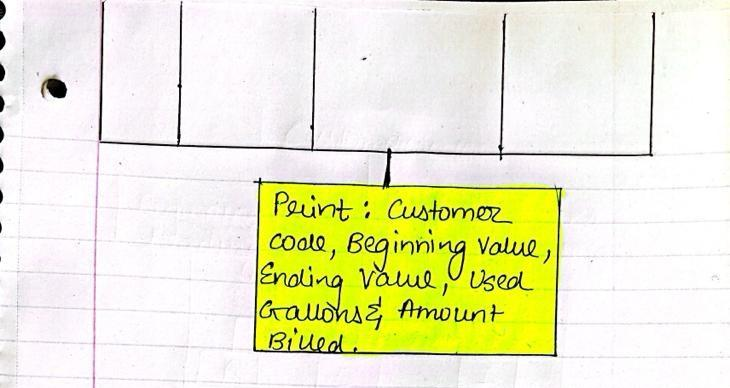 Print: Customer
code, Beginning Value,
Ending Value, Used
Gallons & Amount
Billed.